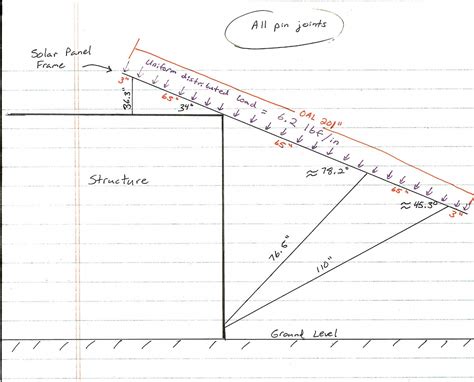 All pin joints
Solar Panel
Frame
Uniform distributed load = 6.2 lbf/in
OAL 201"
3"
65"
34"
26.3"
65"
≈ 78.2°
65"
≈ 45.3°
3"
Structure
76.6"
110"
Ground Level